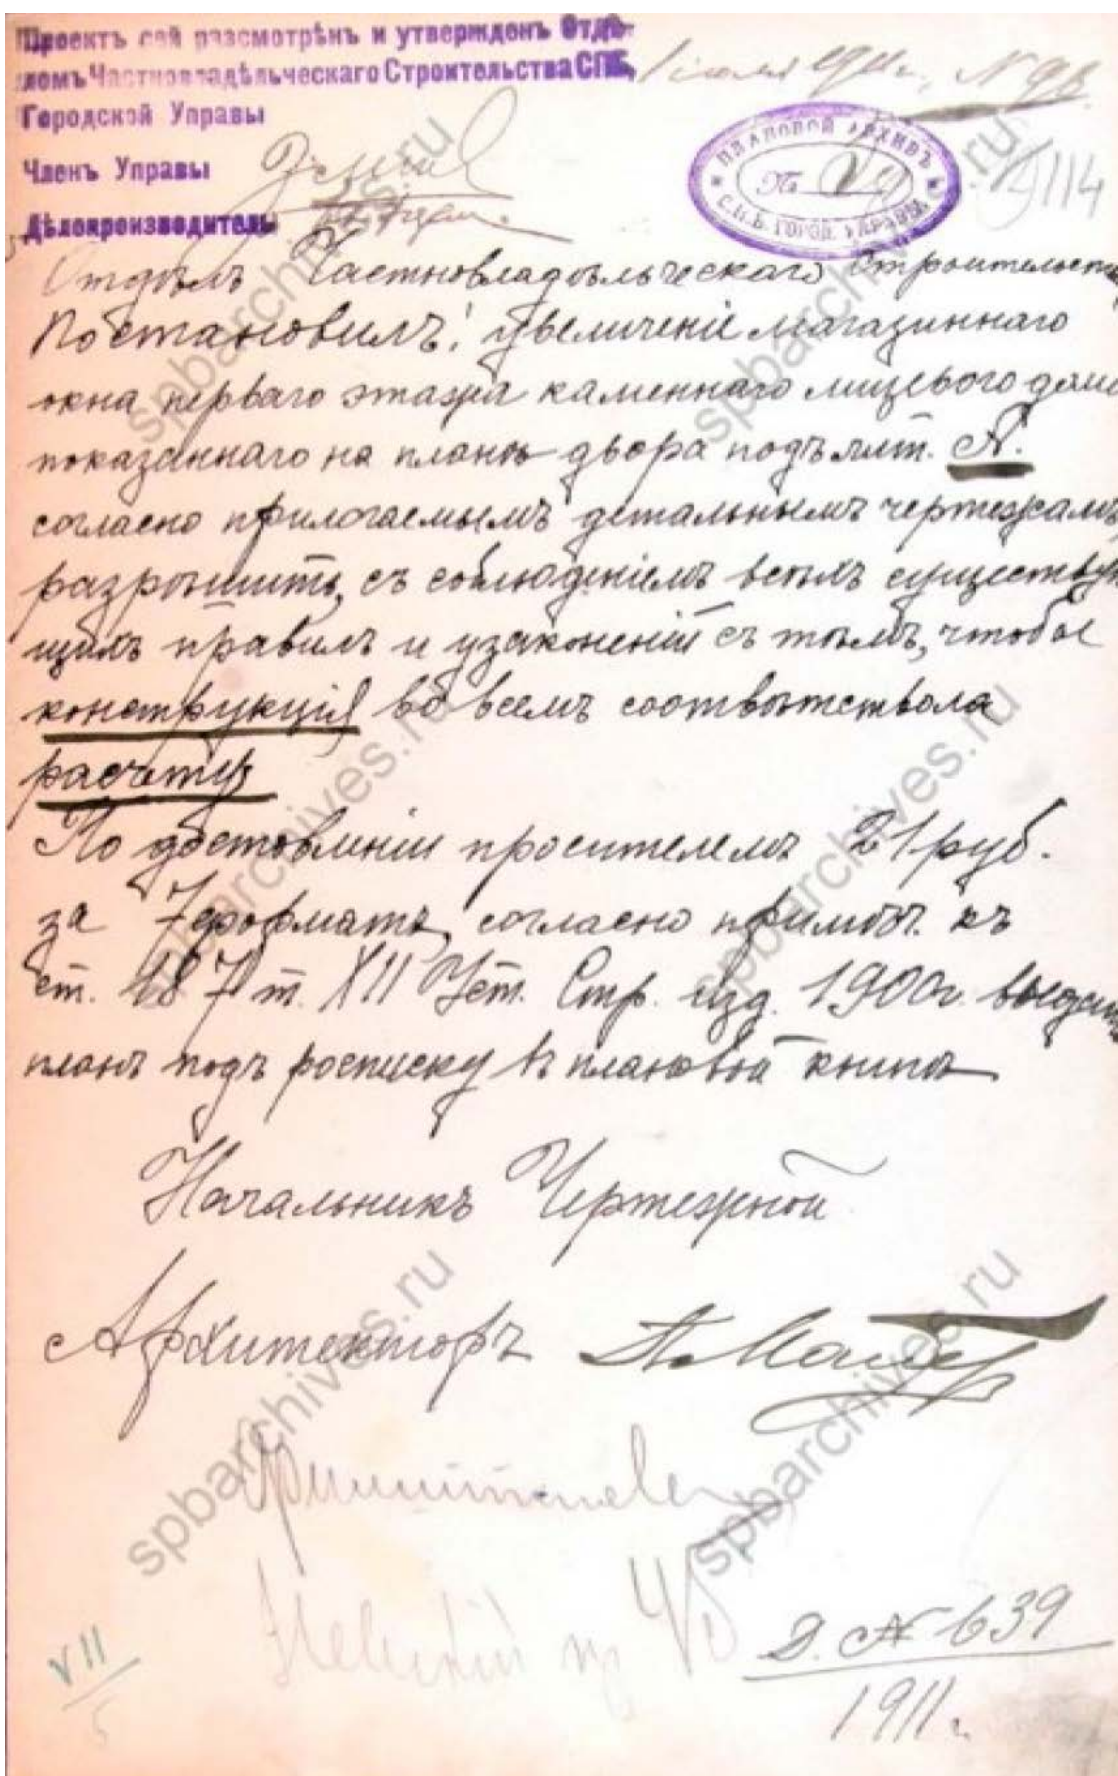 Проектъ сей разсмотрѣнъ и утвержденъ Отдѣ-
ломъ Частновладѣльческаго Строительства СПБ,
Городской Управы
1 іюля 1911 г. № 98
Членъ Управы
Дѣлопроизводитель
ПЛАНОВОЙ АРХИВЪ
№
С.П.Б. ГОРОД. УПРАВЫ
114
Отдѣлъ Частновладѣльческаго Строительств
Постановилъ: увеличеніе магазиннаго
окна перваго этажа каменнаго лицевого дома
показаннаго на планѣ двора подъ лит. А.
согласно прилагаемымъ детальнымъ чертежамъ,
разрѣшить, съ соблюденіемъ всѣхъ существую
щихъ правилъ и узаконеній съ тѣмъ, чтобы
конструкція во всемъ соотвѣтствовала
расчету
По доставленіи просителемъ 21 руб.
за 7 формата, согласно примѣч. къ
ст. 187 т. XII Уст. Стр. изд. 1900 г. выдать
планъ подъ росписку въ плановой книгѣ
Начальникъ Чертежной
Архитекторъ
Невскій пр
Д. № 639
1911 г.
VII
5
spbarchives.ru
spbarchives.ru
spbarchives.ru
spbarchives.ru
spbarchives.ru
spbarchives.ru